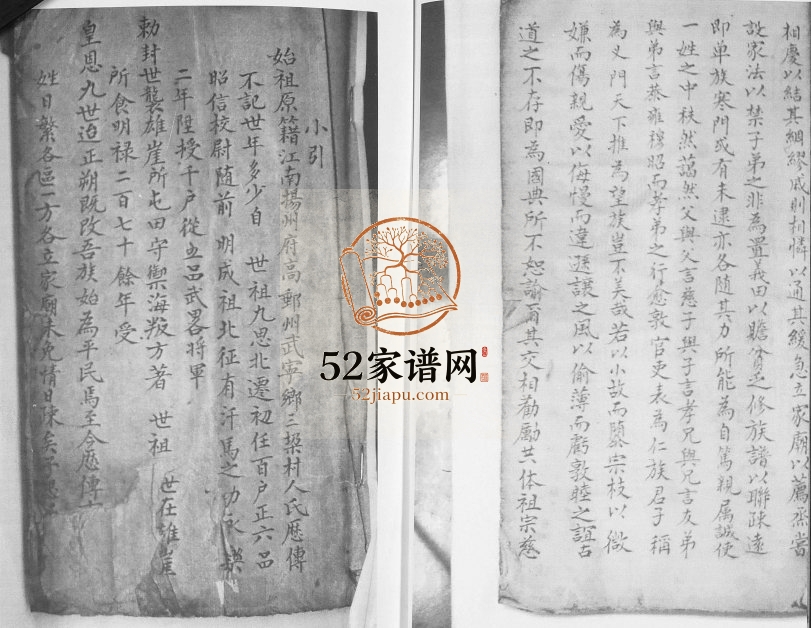 相慶以結其綢繆戚則相憐以通其緩急立家廟以薦烝嘗
設家法以禁子弟之非為置義田以贍貧乏修族譜以聯疎遠
即单族寒門或有未逮亦各随其力所能為自篤親属誠使
一姓之中秩然藹然父與父言慈子與子言孝兄與兄言友弟
與弟言恭雍穆昭而孝弟之行愈敦官吏表為仁族君子稱
為义門天下推為望族豈不美哉若以小故而隳宗枝以微
嫌而傷親愛以侮慢而違遜讓之風以偷薄而虧敦睦之誼古
道之不存即為國典所不恕諭爾其交相勸勵共体祖宗慈
小引
始祖原籍江南揚州府高郵州武寧鄉三槩村人氏歴傳
不記世年多少自 世祖九思北遷初任百户正六品
昭信校尉随前 明成祖北征有汗馬之功永樂
二年陞授千户從五品武畧將軍
勅封世襲雄崖所屯田守禦海叛方著 世祖 世任雄崖
所食明禄二百七十餘年受
皇恩九世迨正朔既改吾族始為平民焉至今歴傳
姓日繁各區一方各立家廟未免情日陳矣予
52家谱网
52jiapu.com